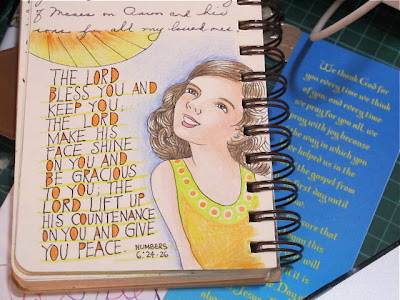 of Moses on Aaron and his
sons for all my loved ones.
THE LORD
BLESS YOU AND
KEEP YOU;
THE LORD
MAKE HIS
FACE SHINE
ON YOU AND
BE GRACIOUS
TO YOU; THE
LORD LIFT UP
HIS COUNTENANCE
ON YOU AND GIVE
YOU PEACE.
NUMBERS
6:24-26
We thank God for
you every time we think
of you; and every time
we pray for you all, we
pray with joy because
the way in which you
helped us in the
the gospel from
first day until
sure that
this
will
it is
Jesus